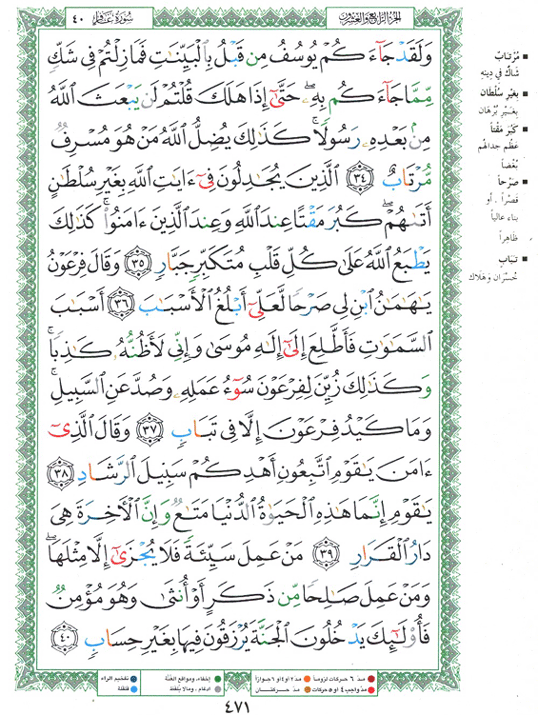 سُورَةُ غَافِرٍ ٤٠
الجُزْءُ الرَّابِعُ وَالعِشْرُونَ
وَلَقَدْ جَآءَكُمْ يُوسُفُ مِن قَبْلُ بِٱلْبَيِّنَٰتِ فَمَا زِلْتُمْ فِى شَكٍّ
مِّمَّا جَآءَكُم بِهِۦ ۖ حَتَّىٰٓ إِذَا هَلَكَ قُلْتُمْ لَن يَبْعَثَ ٱللَّهُ
مِنۢ بَعْدِهِۦ رَسُولًا ۚ كَذَٰلِكَ يُضِلُّ ٱللَّهُ مَنْ هُوَ مُسْرِفٌ
مُّرْتَابٌ ٣٤ ٱلَّذِينَ يُجَٰدِلُونَ فِىٓ ءَايَٰتِ ٱللَّهِ بِغَيْرِ سُلْطَٰنٍ
أَتَىٰهُمْ ۖ كَبُرَ مَقْتًا عِندَ ٱللَّهِ وَعِندَ ٱلَّذِينَ ءَامَنُوا۟ ۚ كَذَٰلِكَ
يَطْبَعُ ٱللَّهُ عَلَىٰ كُلِّ قَلْبِ مُتَكَبِّرٍ جَبَّارٍ ٣٥ وَقَالَ فِرْعَوْنُ
يَٰهَٰمَٰنُ ٱبْنِ لِى صَرْحًا لَّعَلِّىٓ أَبْلُغُ ٱلْأَسْبَٰبَ ٣٦ أَسْبَٰبَ
ٱلسَّمَٰوَٰتِ فَأَطَّلِعَ إِلَىٰٓ إِلَٰهِ مُوسَىٰ وَإِنِّى لَأَظُنُّهُۥ كَٰذِبًا ۚ
وَكَذَٰلِكَ زُيِّنَ لِفِرْعَوْنَ سُوٓءُ عَمَلِهِۦ وَصُدَّ عَنِ ٱلسَّبِيلِ ۚ
وَمَا كَيْدُ فِرْعَوْنَ إِلَّا فِى تَبَابٍ ٣٧ وَقَالَ ٱلَّذِىٓ
ءَامَنَ يَٰقَوْمِ ٱتَّبِعُونِ أَهْدِكُمْ سَبِيلَ ٱلرَّشَادِ ٣٨
يَٰقَوْمِ إِنَّمَا هَٰذِهِ ٱلْحَيَوٰةُ ٱلدُّنْيَا مَتَٰعٌ وَإِنَّ ٱلْءَاخِرَةَ هِىَ
دَارُ ٱلْقَرَارِ ٣٩ مَنْ عَمِلَ سَيِّئَةً فَلَا يُجْزَىٰٓ إِلَّا مِثْلَهَا ۖ
وَمَنْ عَمِلَ صَٰلِحًا مِّن ذَكَرٍ أَوْ أُنثَىٰ وَهُوَ مُؤْمِنٌ
فَأُو۟لَٰٓئِكَ يَدْخُلُونَ ٱلْجَنَّةَ يُرْزَقُونَ فِيهَا بِغَيْرِ حِسَابٍ ٤٠
مُرْتَابٌ
شَاكٌّ فِي دِينِهِ
بِغَيْرِ سُلْطَانٍ
بِغَيْرِ بُرْهَانٍ
كَبُرَ مَقْتاً
عَظُمَ جِدَالُهُمْ
بُغْضاً
صَرْحاً
قَصْراً . أَو
بناء عالياً
ظَاهِراً
تَبَابٍ
خُسْرَانٍ وَهَلَاكٍ
مدّ ٦ حركات لزوماً
مدّ ٢ أو ٤ أو ٦ جوازاً
مدّ واجب ٤ أو ٥ حركات
مدّ حركتـــان
إخفاء، ومواقع الغُنَّة
ادغام، وما لا يُلفَظ
تفخيم الراء
قلقلة
٤٧١